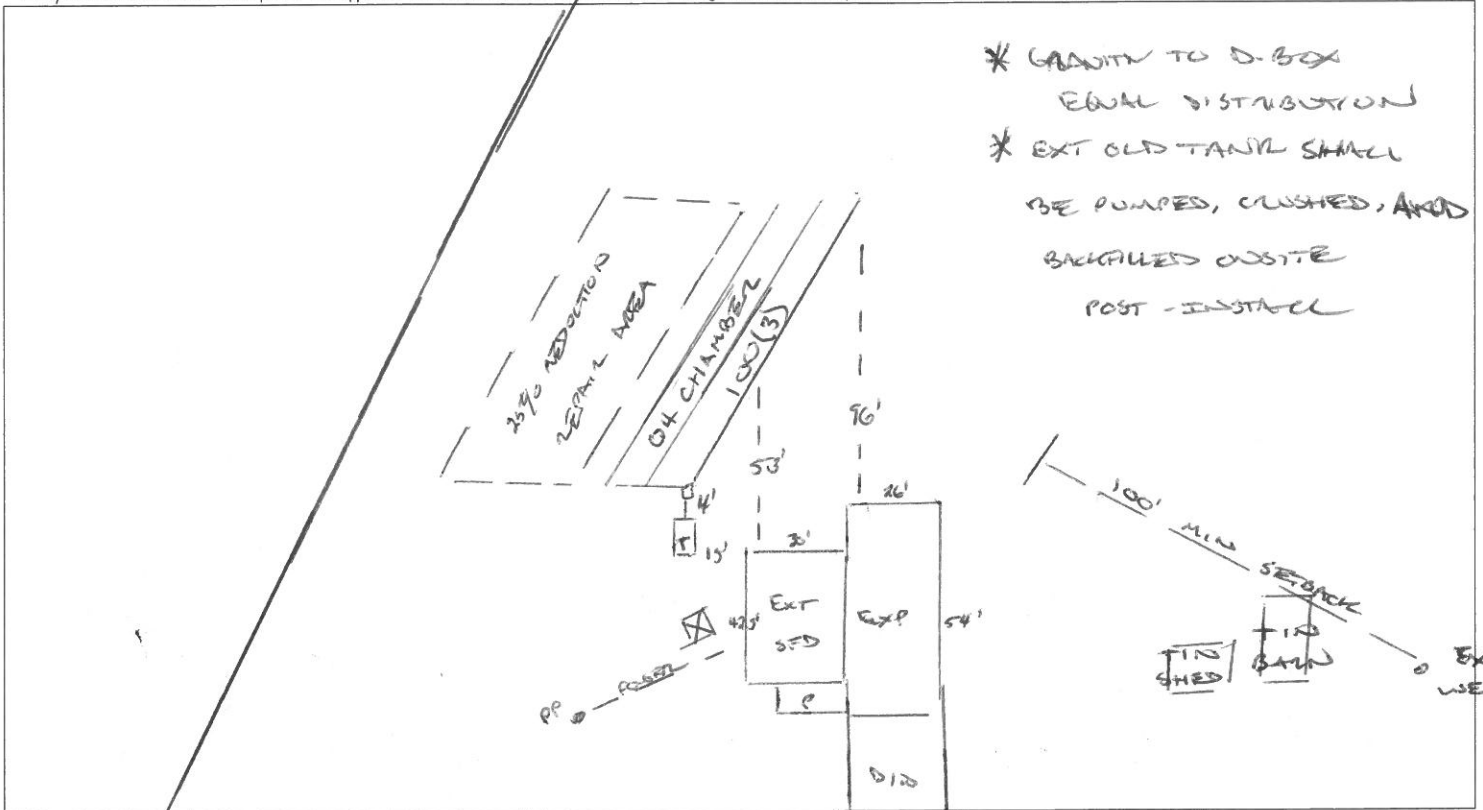 * GRAVITY TO D-BOX
EQUAL DISTRIBUTION
* EXT OLD TANK SHALL
BE PUMPED, CRUSHED, AND
BACKFILLED ONSITE
POST-INSTALL
25% REDUCTION
REPAIR AREA
Q4 CHAMBER
100(3)
53'
96'
4'
T
15'
30'
26'
EXT
SFD
EXP
54'
P
POWER
PP
100' MIN SETBACK
TIN
SHED
TIN
BARN
EX
WE